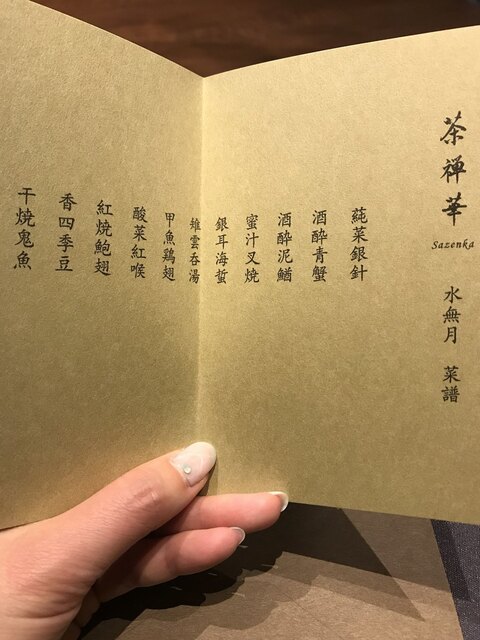 茶禅華
Sazenka
水無月 菜譜
蒓菜銀針
酒酔青蟹
酒酔泥鰌
蜜汁叉焼
銀耳海蜇
雉雲呑湯
甲魚鶏翅
酸菜紅喉
紅焼鮑翅
香四季豆
干焼鬼魚